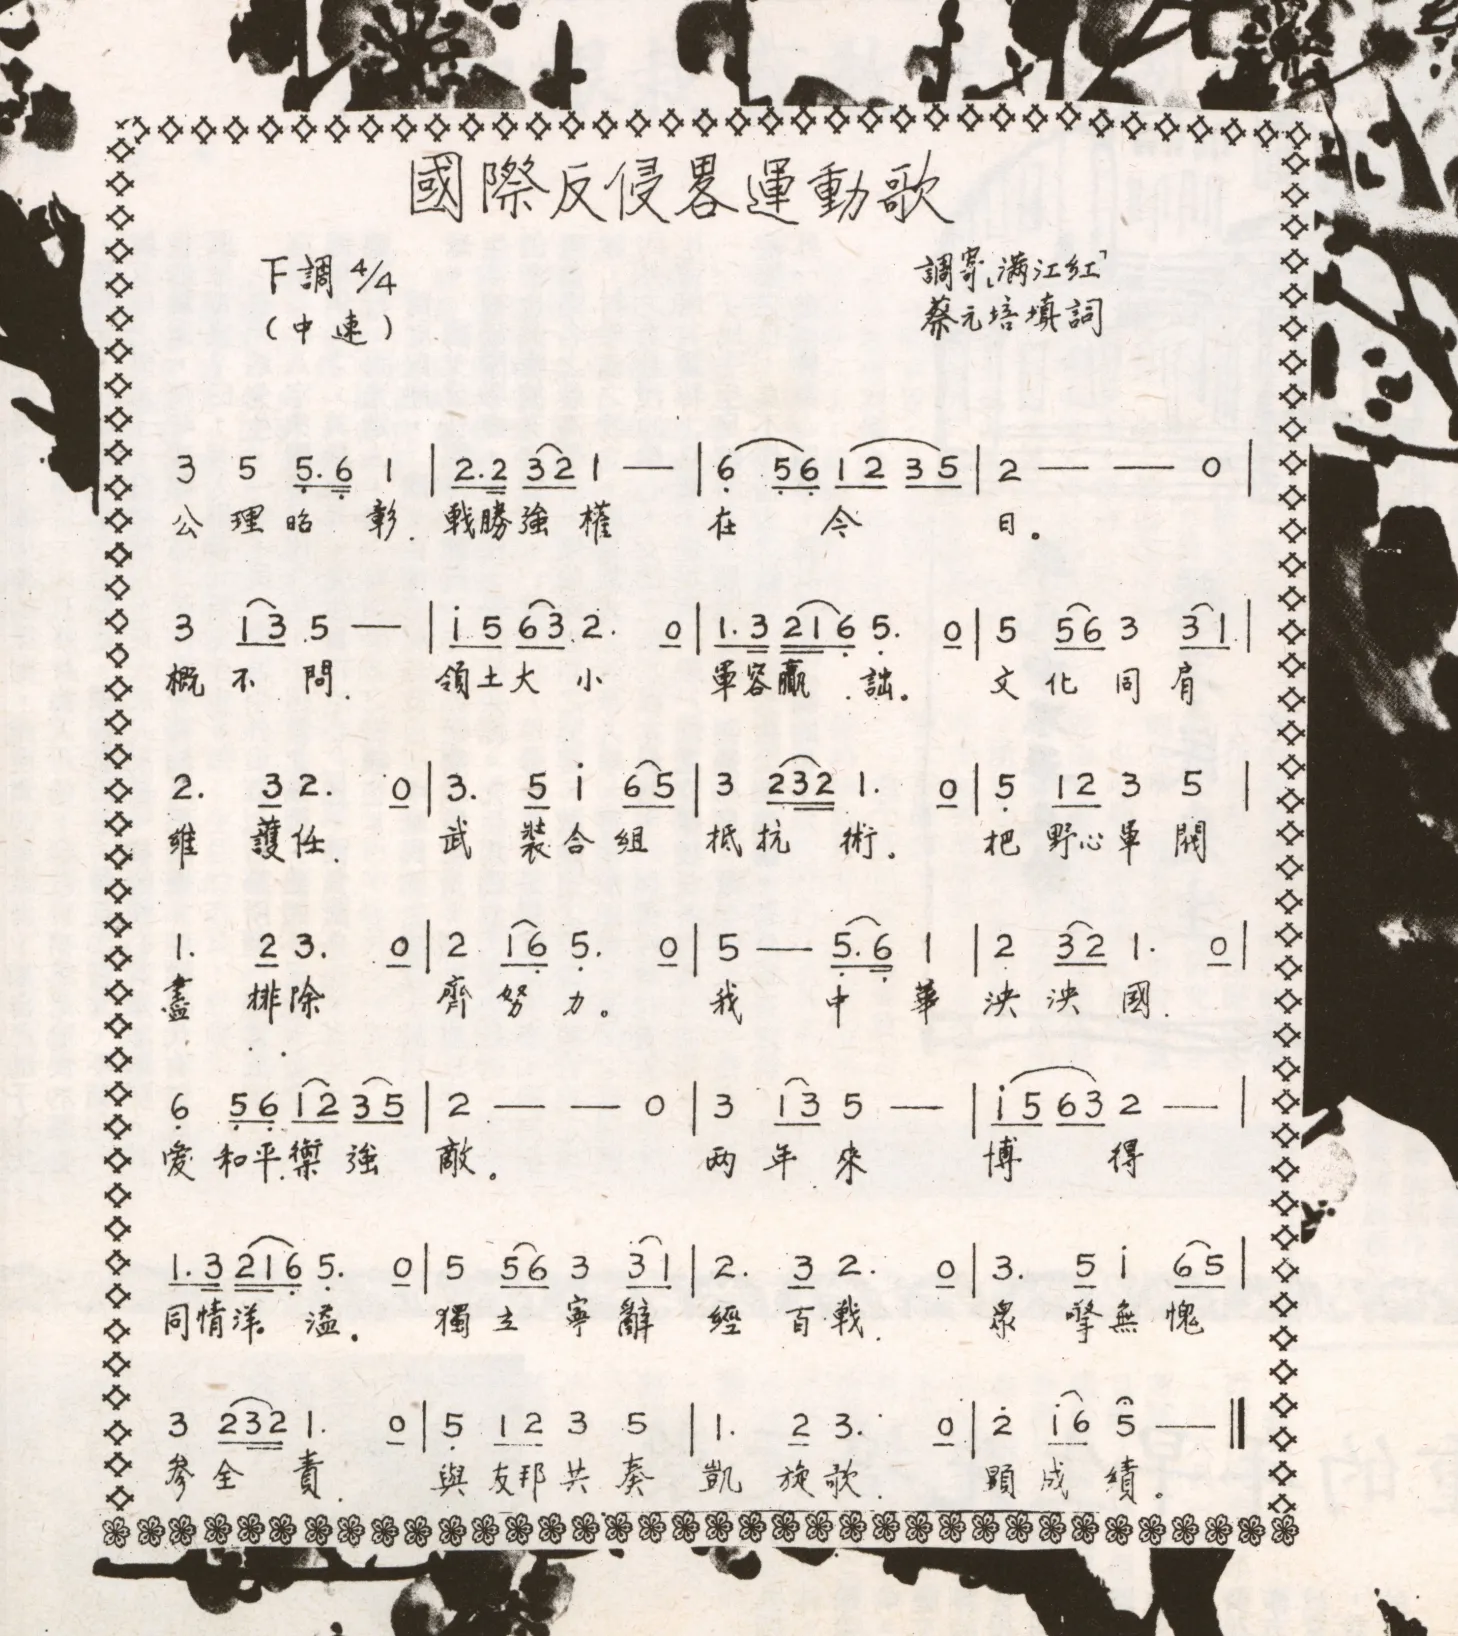 國際反侵畧運動歌
下調 4/4
(中速)
調寄「滿江紅」
蔡元培填詞
3 5 5.6 1 | 2.2 32 1 — | 6 56 12 35 | 2 — — 0 |
公理昭彰. 戰勝強權 在今日。
3 13 5 — | i5 63 2. 0 | 1.3 216 5. 0 | 5 56 3 31 |
概不問. 領土大小 軍容贏詘。 文化同肩
2. 3 2. 0 | 3. 5 i 65 | 3 232 1. 0 | 5 12 3 5 |
維護任. 武裝合組 抵抗術。 把野心軍閥
1. 2 3. 0 | 2 16 5. 0 | 5 — 5.6 1 | 2 32 1. 0 |
盡排除 齊努力。 我中華泱泱國.
6 56 12 35 | 2 — — 0 | 3 13 5 — | i5 63 2 — |
愛和平.禦強敵。 两年來 博得
1.3 216 5. 0 | 5 56 3 31 | 2. 3 2. 0 | 3. 5 i 65 |
同情洋溢。 獨立寧辭 經百戰. 眾擎無愧
3 232 1. 0 | 5 12 3 5 | 1. 2 3. 0 | 2 i6 5 — ‖
參全責. 與友邦共奏 凱旋歌. 顯成績。